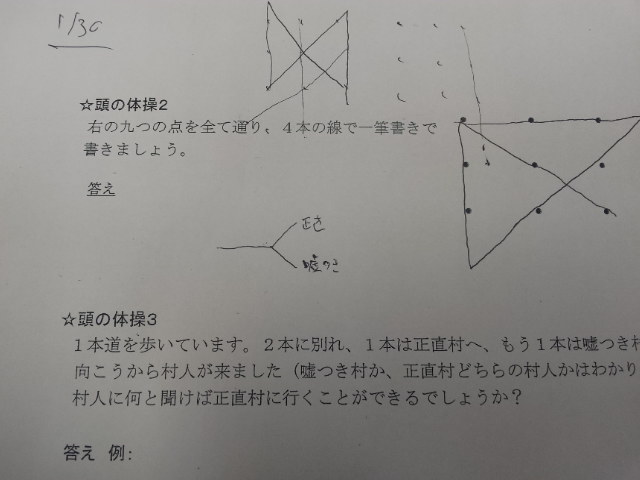 1/30
☆頭の体操2
右の九つの点を全て通り、4本の線で一筆書きで
書きましょう。
答え
正直
嘘つき
☆頭の体操3
1本道を歩いています。2本に別れ、1本は正直村へ、もう1本は嘘つき村
向こうから村人が来ました（嘘つき村か、正直村どちらの村人かはわかり
村人に何と聞けば正直村に行くことができるでしょうか？
答え 例：